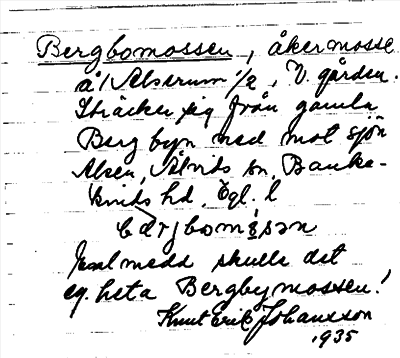 Bergbomossen, åkermosse
å Alserum 1/2, V. gården.
Sträcker sig från gamla
Berg byn ned mot sjön
Alsen, Åtvids sn, Banke-
kinds hd, Ögl. l
bærjbomåsən
meddd skulle det
eg. heta Bergbymossen!
Knut Erik Johansson
1935